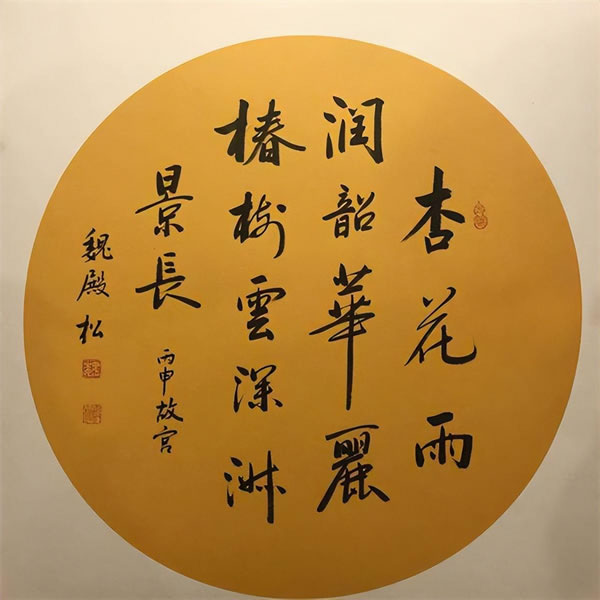 杏花雨
润韶華麗
椿樹雲深淑
景長
丙申故宫
魏殿松